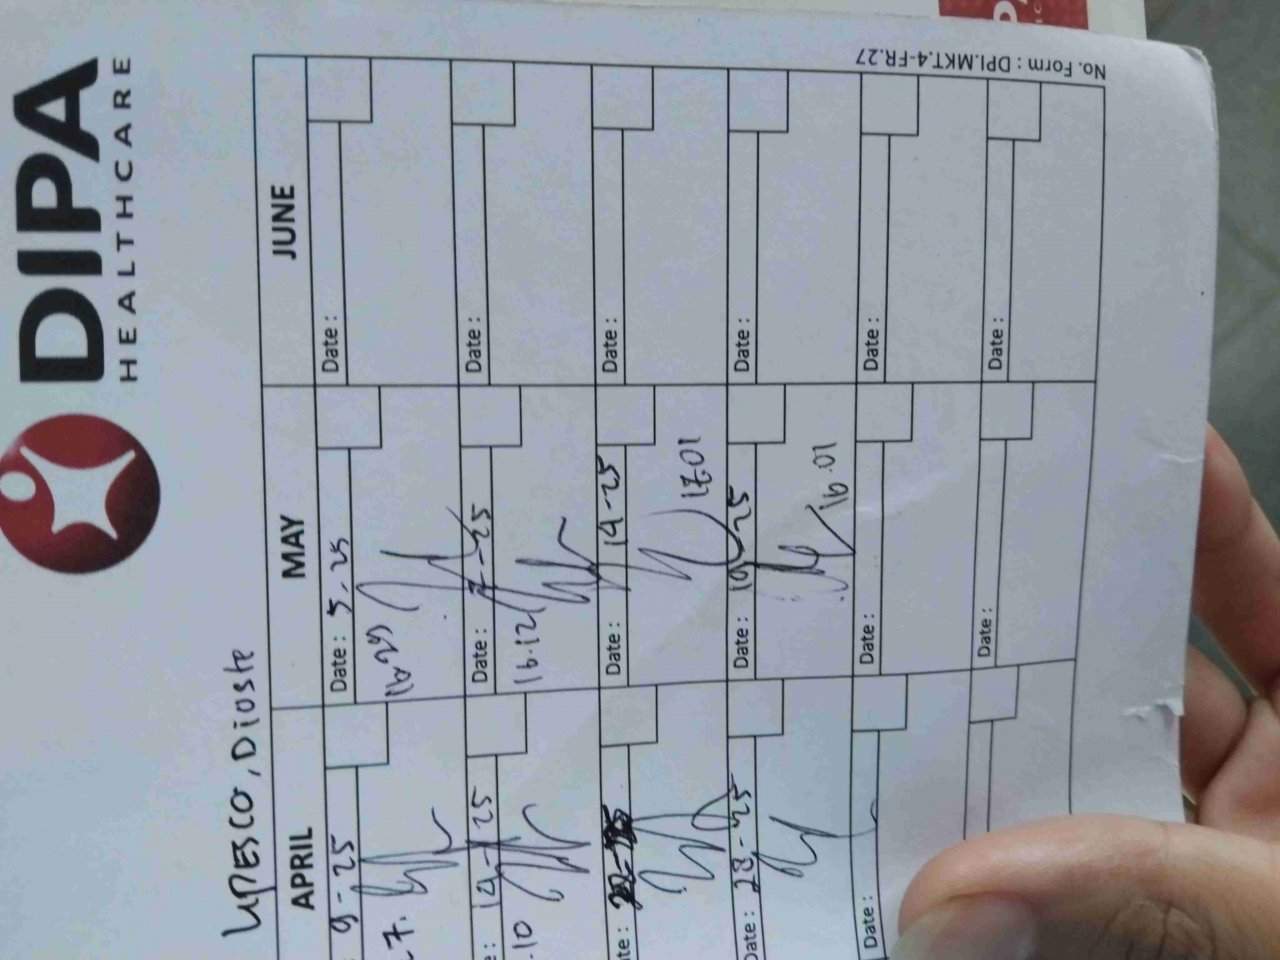 DIPA
HEALTHCARE
LIPESCO, Dioste
APRIL
MAY
JUNE
9-25
Date : 5, 25
Date :
7.
16.29
: 14-25
Date : 7-25
Date :
.10
16.12
te :
Date : 14-25
Date :
17.01
Date : 28-25
Date : 19-25
Date :
16.01
Date :
Date :
Date :
Date :
Date :
No. Form : DPI.MKT.4-FR.27